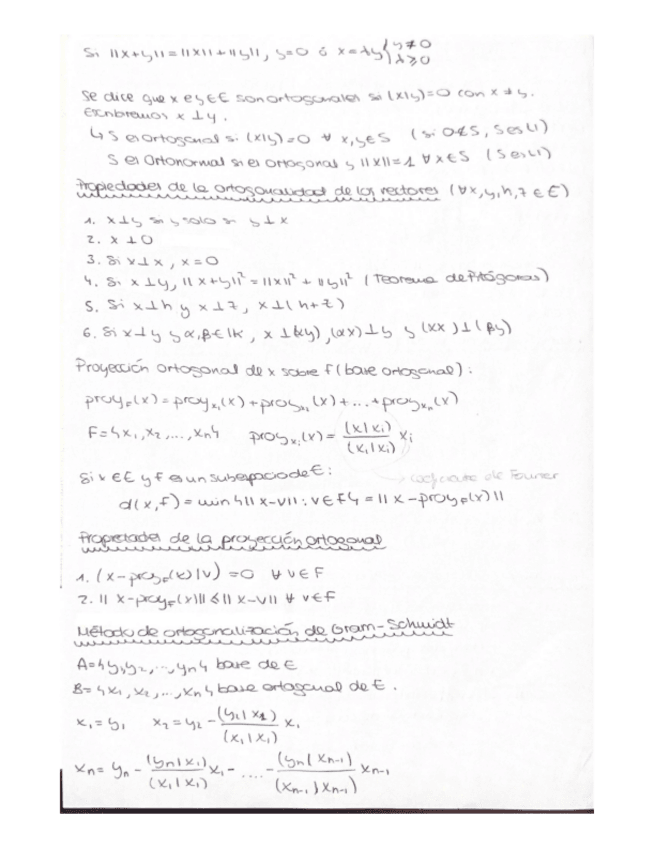 Si ||x+y||=||x||+||y||, y=0 ó x=λy { y≠0 λ≥0
Se dice que x e y∈E son ortogonales si (x|y)=0 con x≠y.
Escribiremos x⊥y.
↳ S es ortogonal si (x|y)=0 ∀ x,y∈S (si 0∉S, S es LI)
S es Ortonormal si es ortogonal y ||x||=1 ∀x∈S (S es LI)
Propiedades de la ortogonalidad de los vectores (∀x,y,h,z∈E)
1. x⊥y si y solo si y⊥x
2. x⊥0
3. Si x⊥x, x=0
4. Si x⊥y, ||x+y||²=||x||²+||y||² (Teorema de Pitágoras)
5. Si x⊥h y x⊥z, x⊥(h+z)
6. Si x⊥y y α,β∈K, x⊥(αy), (αx)⊥y y (αx)⊥(βy)
Proyección ortogonal de x sobre F (base ortogonal):
proy_F(x)=proy_x₁(x)+proy_x₂(x)+...+proy_xₙ(x)
F={x₁,x₂,...,xₙ} proy_xᵢ(x)= (x|xᵢ)/(xᵢ|xᵢ) xᵢ
Si x∈E y F es un subespacio de E:
→ coeficiente de Fourier
d(x,F)=min{||x-v||: v∈F}=||x-proy_F(x)||
Propiedades de la proyección ortogonal
1. (x-proy_F(x)|v)=0 ∀v∈F
2. ||x-proy_F(x)||≤||x-v|| ∀v∈F
Método de ortogonalización de Gram-Schmidt
A={y₁,y₂,...,yₙ} base de E
B={x₁,x₂,...,xₙ} base ortogonal de E.
x₁=y₁ x₂=y₂- (y₂|x₁)/(x₁|x₁) x₁
xₙ=yₙ- (yₙ|x₁)/(x₁|x₁) x₁-....- (yₙ|xₙ₋₁)/(xₙ₋₁|xₙ₋₁) xₙ₋₁